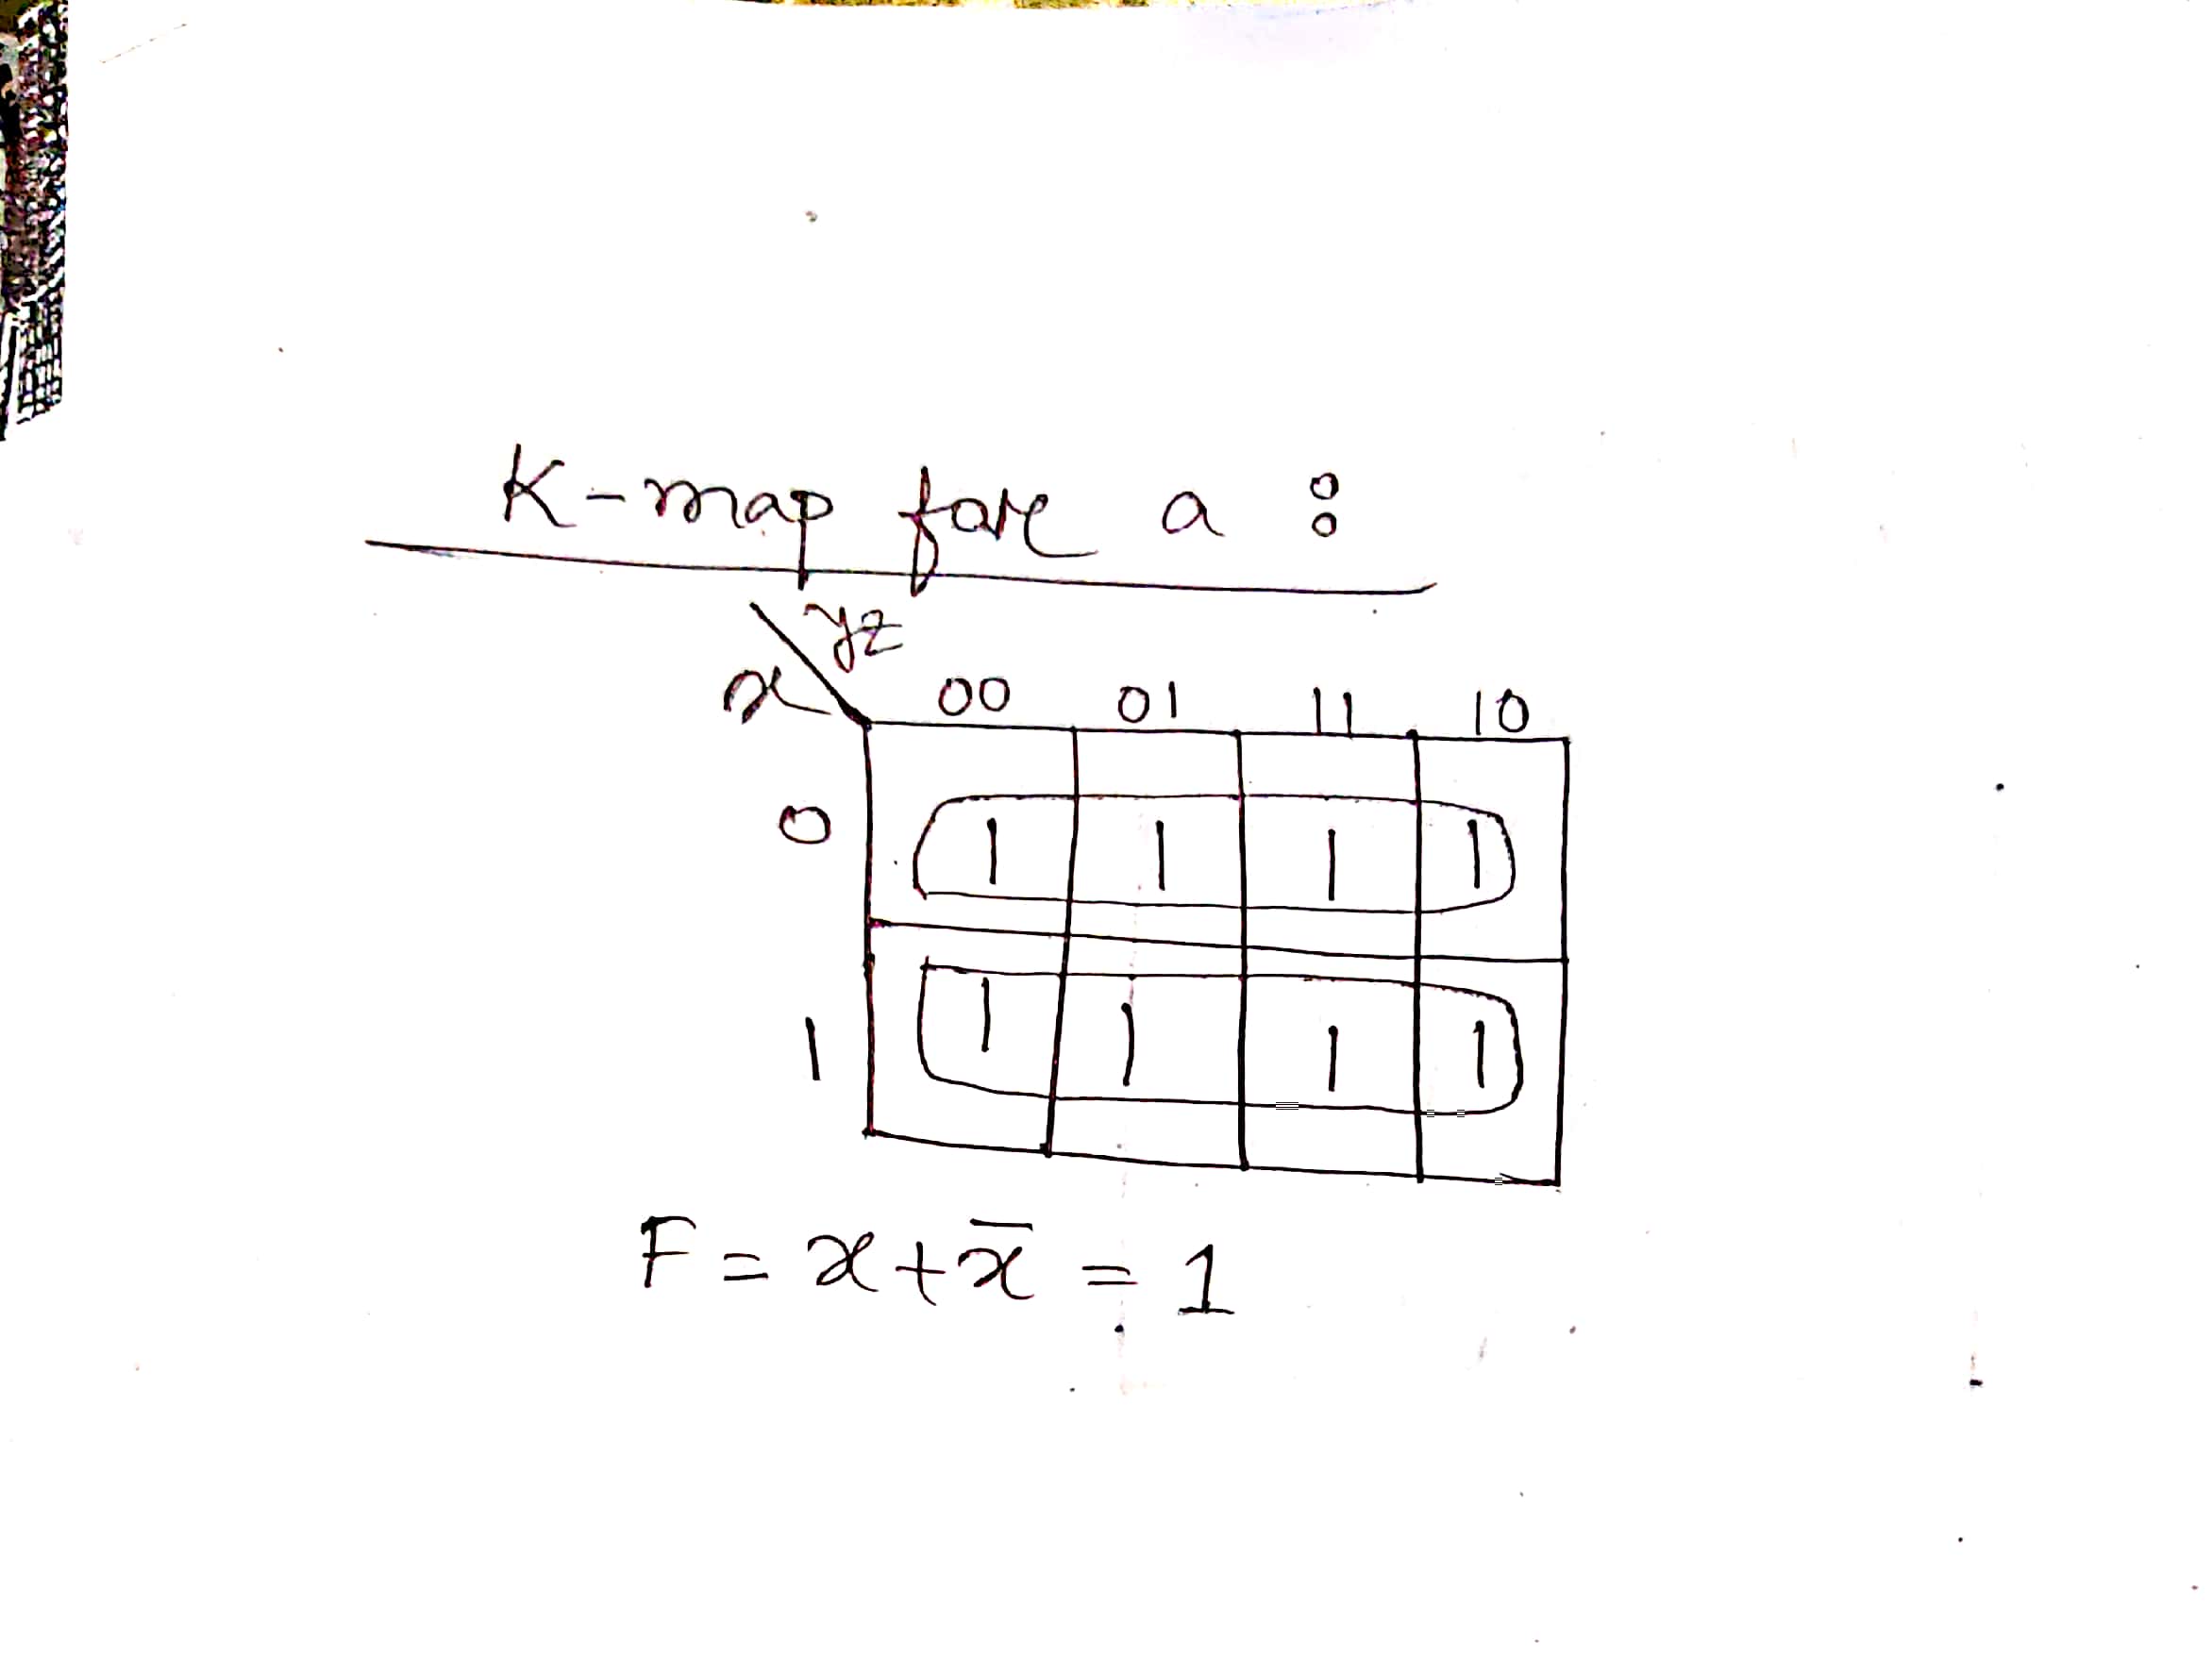 K-map fore a :
yz
x 00 01 11 10
0 1 1 1 1
1 1 1 1 1
F = x + x̅ = 1